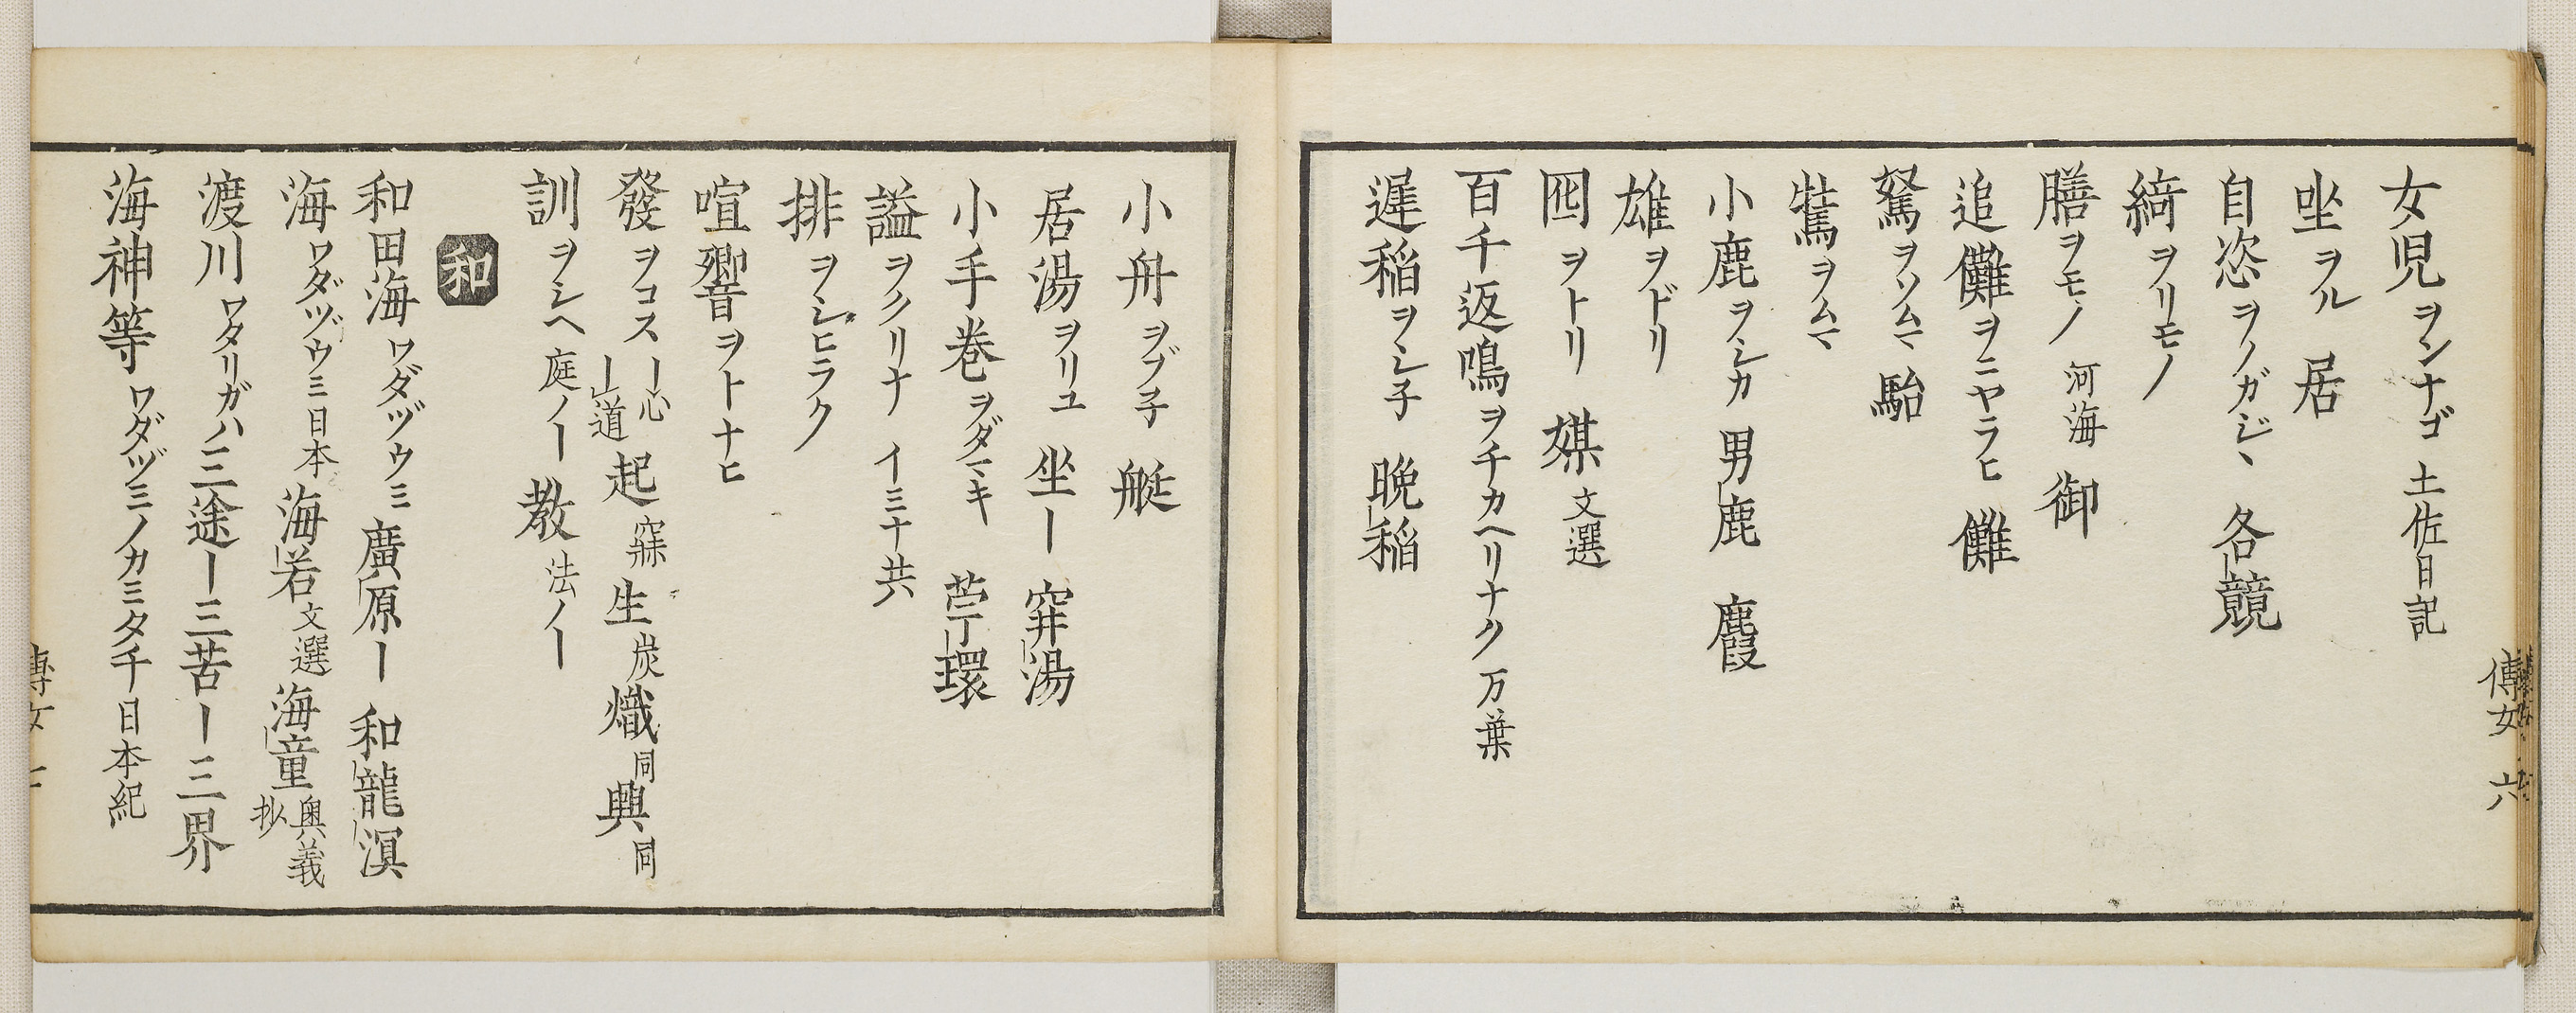 女児ヲンナゴ 土佐日記
坐ヲル 居
自恣ヲノガジヽ 各競
綺ヲリモノ
膳ヲモノ 河海 御
追儺ヲニヤラヒ 儺
駑ヲソムマ 駘
ヲソムマ
小鹿ヲシカ 男鹿 麚
雄ヲドリ
囮ヲトリ 媒 文選
百千返鳴ヲチカヘリナク 万葉
遅稲ヲシ子 晩稲
傳女 六
小舟ヲブ子 艇
居湯ヲリユ 坐ー 穽湯
小手巻ヲダマキ 苧環
謚ヲクリナ イミ十共
排ヲシヒラク
喧響ヲトナヒ
發ヲコス ー心 ー道 起 寐 生 炭 熾 同 興 同
訓ヲシヘ 庭ノー 教 法ノー
和
和田海ワダヅウミ 廣原ー 和龍溟
海ワダヅウミ 日本 海若 文選 海童 奥義抄
渡川ワタリガハ 三途ー 三苦ー 三界
海神等ワダヅミノカミタチ 日本紀
傳女